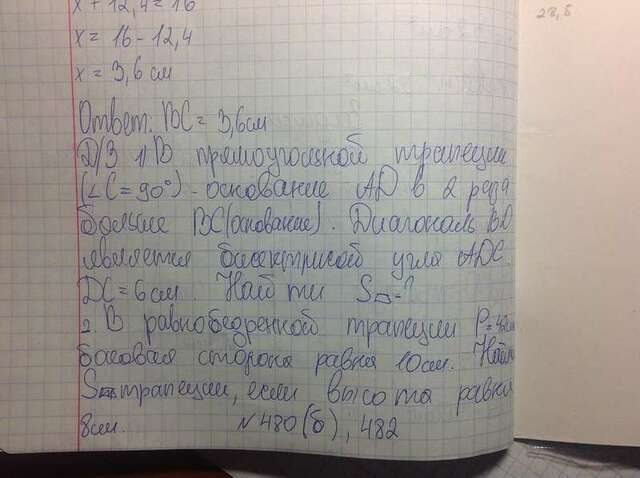 x + 12,4 = 16
x = 16 - 12,4
x = 3,6 см
Ответ: BC = 3,6см
Д/З 1) В прямоугольной трапеции
(∠C = 90°) - основание AD в 2 раза
больше BC (основание). Диагональ BD
является биссектрисой угла ADC.
DC = 6 см. Найти S - ?
2. В равнобедренной трапеции P = 48см
боковая сторона равна 10 см. Найти
S трапеции, если высота равна
8см. N 480 (б), 482
28,8